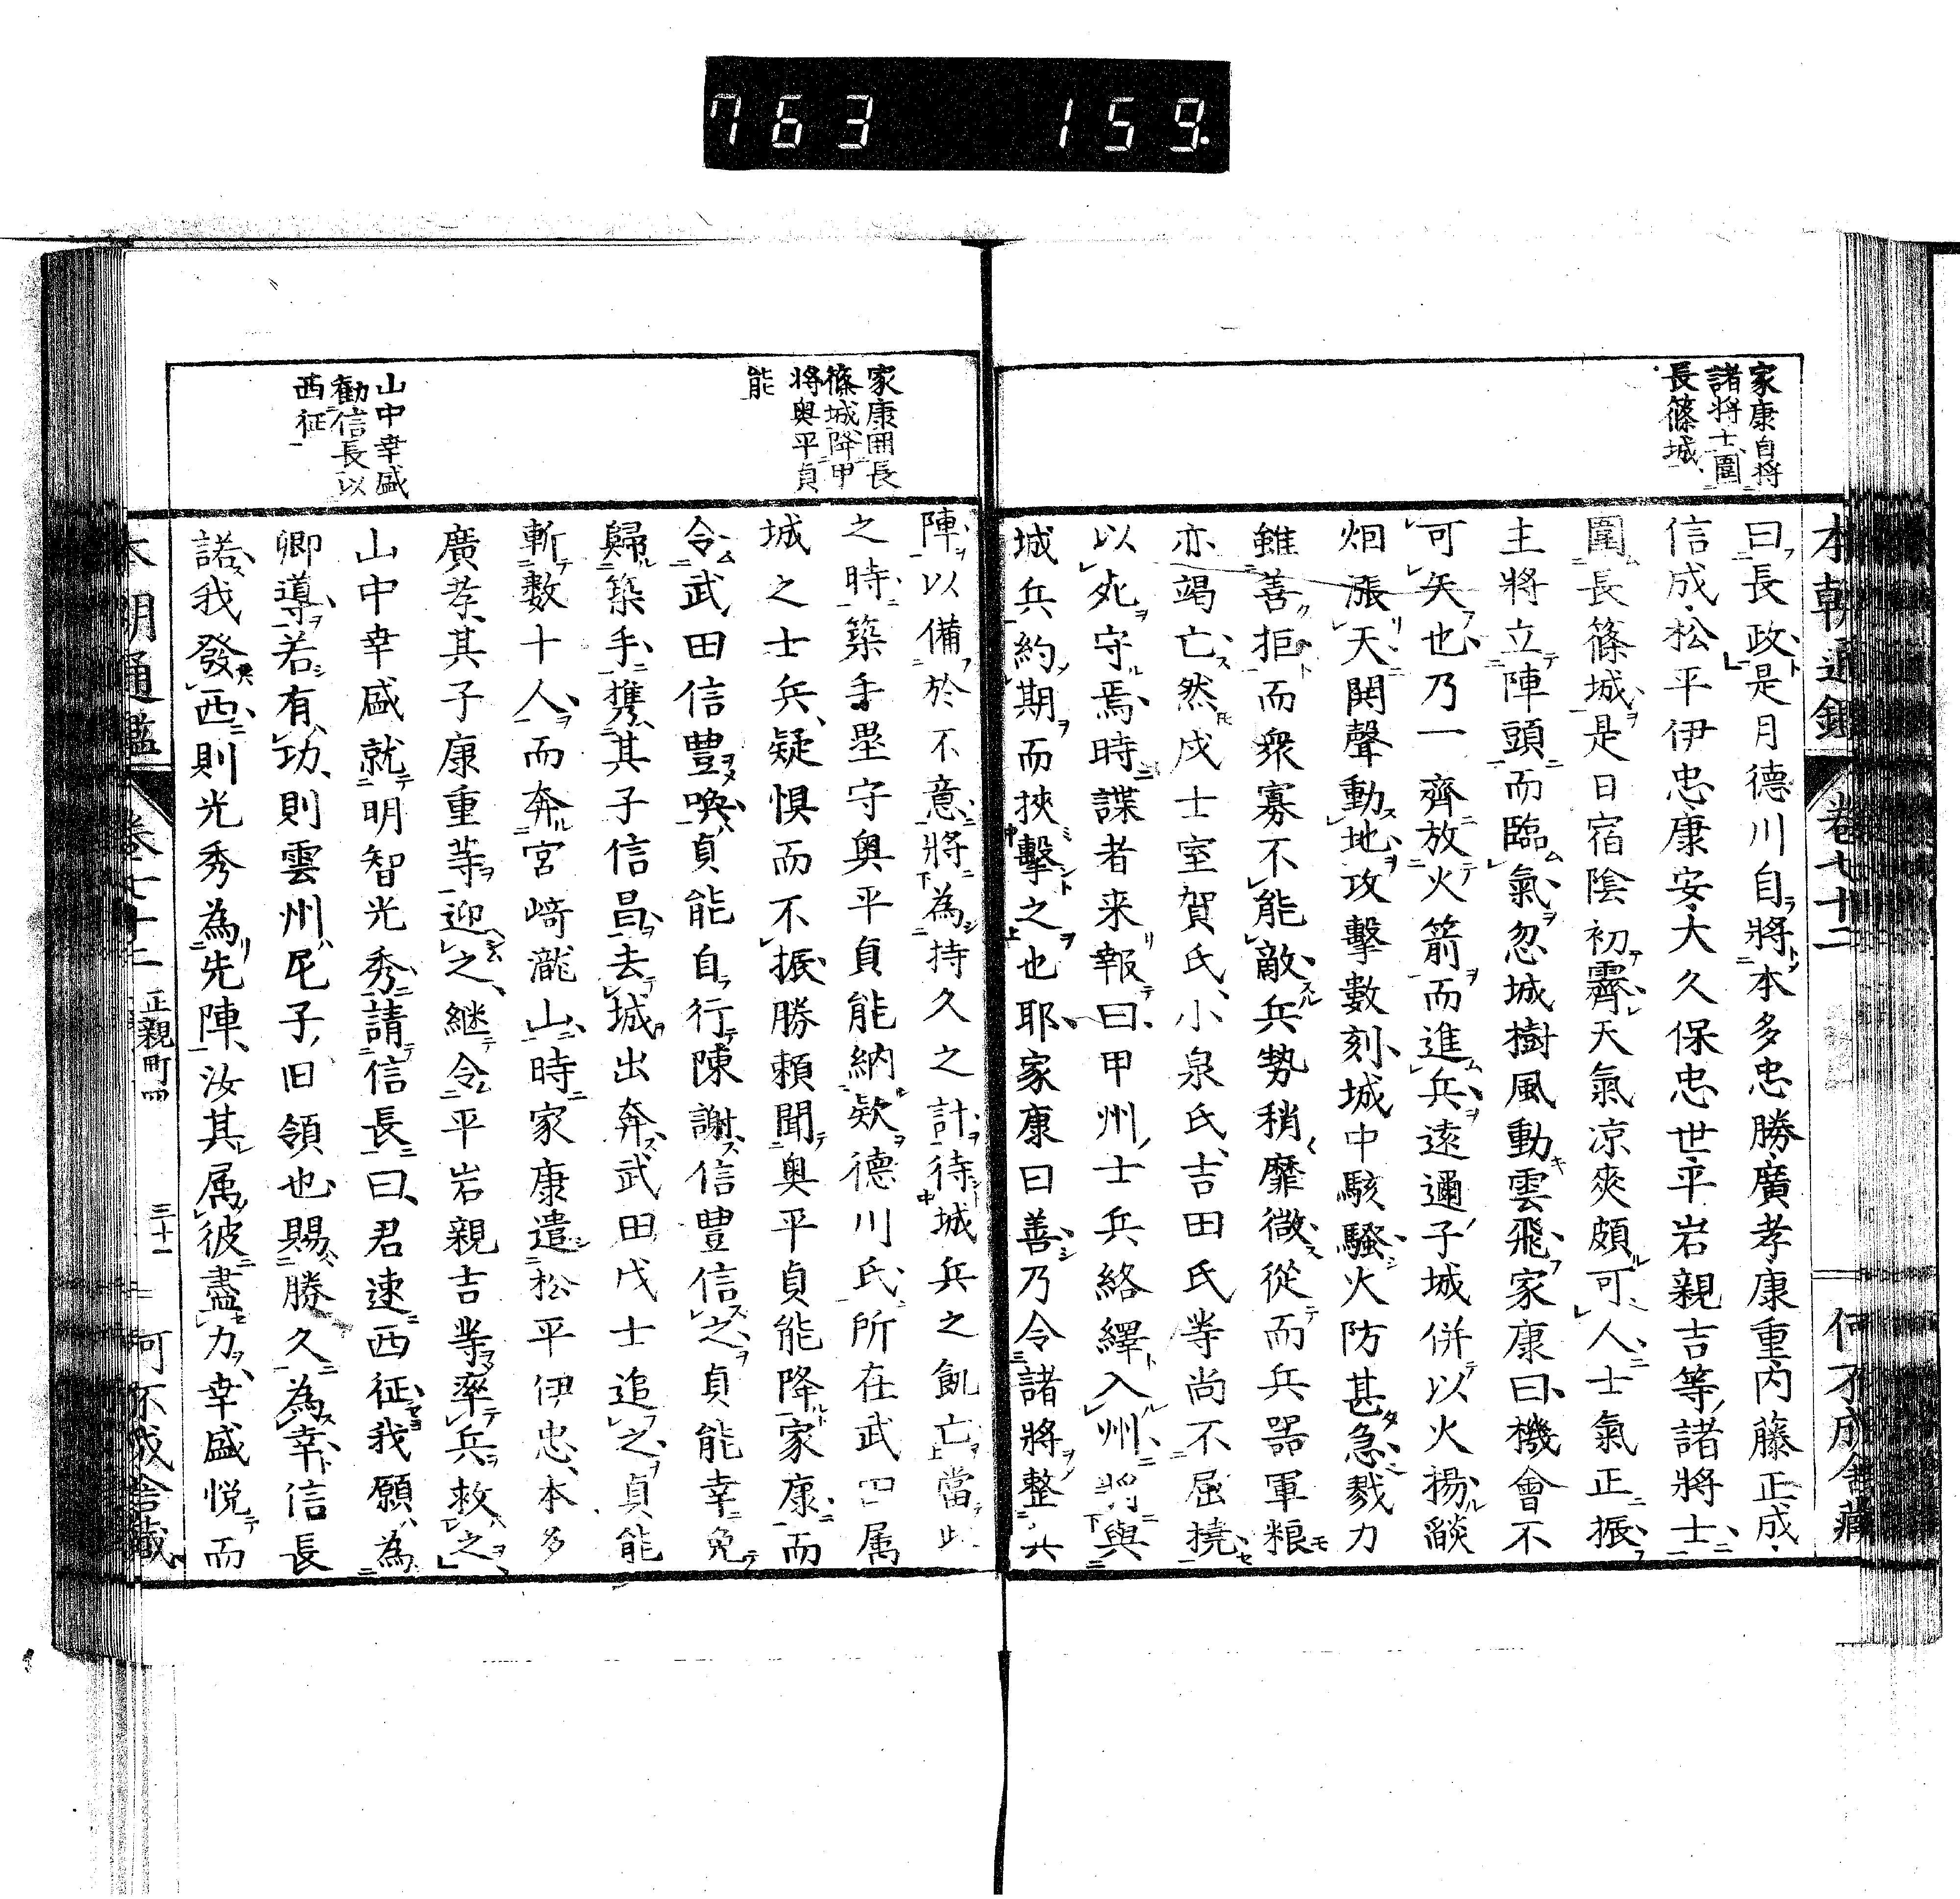 763 159
本朝通鑑 卷七十二 何不成舍藏
家康自將
諸將士圍
長篠城
曰長政是月德川自將本多忠勝廣孝康重内藤正成
信成松平伊忠康安大久保忠世平岩親吉等諸將士
圍長篠城是日宿陰初霽天氣凉爽頗可人士氣正振
主將立陣頭而臨氣忽城樹風動雲飛家康曰機會不
可矢也乃一齊放火箭而進兵遠邇子城併以火揚燄
烟漲天鬨聲動地攻擊數刻城中駭騷火防甚急戮力
雖善拒而衆寡不能敵兵勢稍靡微從而兵器軍粮
亦竭亡然戍士室賀氏小泉氏吉田氏等尚不屈撓
以死守焉時諜者来報曰甲州士兵絡繹入州將與
城兵約期而挾擊之也耶家康曰善乃令諸將整兵
家康囲長
篠城降甲
將奥平貞
能
山中幸盛
勸信長以
西征
陣以備於不意將為持久之計待城兵之飢亡當此
之時築手壘守奥平貞能納欵德川氏所在武田属
城之士兵疑惧而不振勝頼聞奥平貞能降家康而
令武田信豊喚貞能自行陳謝信豊信之貞能幸免
歸築手携其子信昌去城出奔武田戍士追之貞能
斬数十人而奔宮﨑瀧山時家康遣松平伊忠本多
廣孝其子康重等迎之継令平岩親吉等率兵救之
山中幸盛就明智光秀請信長曰君速西征我願為
卿導若有功則雲州尼子旧領也賜勝久為幸信長
諾我發西則光秀為先陣汝其属彼盡力幸盛悦而
本朝通鑑 卷七十二 正親町四 三十一 何不成舍藏